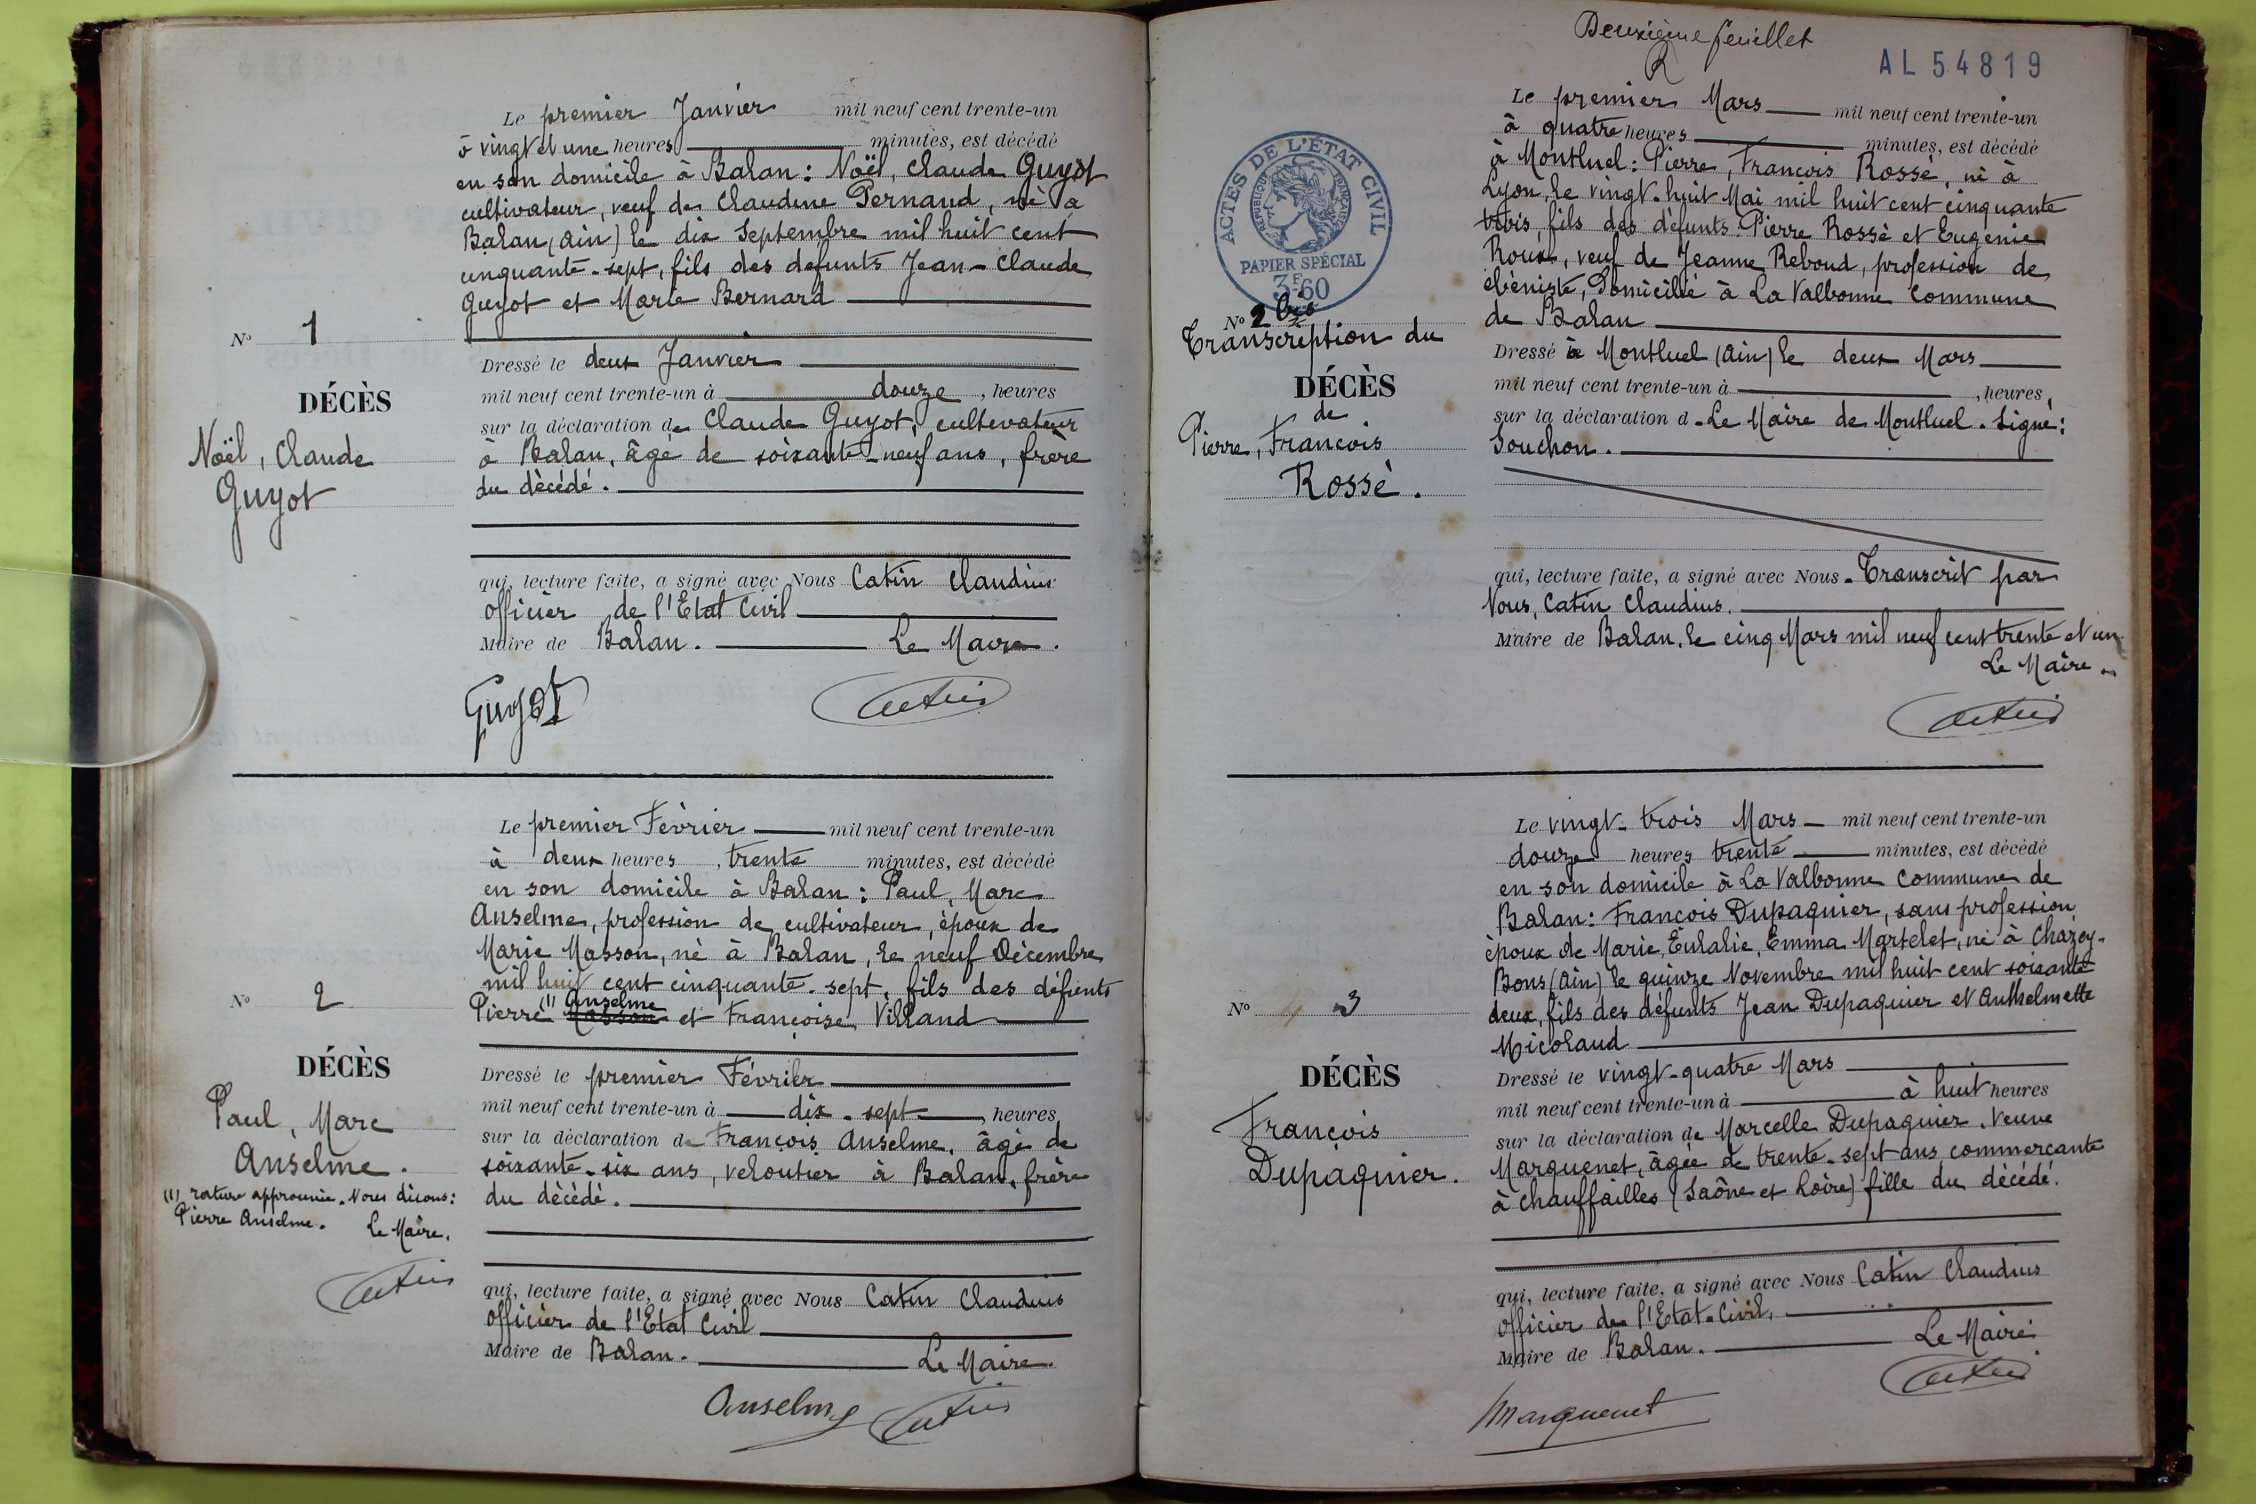 Le premier Janvier mil neuf cent trente-un
à vingt et une heures minutes, est décédé
en son domicile à Balan : Noël, Claude Guyot
cultivateur, veuf de Claudine Pernaud, né à
Balan (Ain) le dix Septembre mil huit cent
cinquante-sept, fils des défunts Jean-Claude
Guyot et Marie Bernard
N° 1
DÉCÈS
Noël, Claude
Guyot
Dressé le deux Janvier
mil neuf cent trente-un à douze, heures
sur la déclaration de Claude Guyot, cultivateur
à Balan, âgé de soixante-neuf ans, frère
du décédé.
qui, lecture faite, a signé avec Nous Catin Claudius
officier de l'Etat Civil
Maire de Balan. Le Maire.
Guyot Catin
Le premier Février mil neuf cent trente-un
à deux heures, trente minutes, est décédé
en son domicile à Balan : Paul, Marc
Anselme, profession de cultivateur, époux de
Marie Masson, né à Balan, le neuf Décembre
mil huit cent cinquante-sept, fils des défunts
Pierre (1) Anselme Masson et Françoise Villand
N° 2
DÉCÈS
Paul, Marc
Anselme.
(1) rature approuvée. Nous disons :
Pierre Anselme. Le Maire.
Catin
Dressé le premier Février
mil neuf cent trente-un à dix-sept heures
sur la déclaration de François Anselme, âgé de
soixante-six ans, veloutier à Balan, frère
du décédé.
qui, lecture faite, a signé avec Nous Catin Claudius
officier de l'Etat Civil
Maire de Balan. Le Maire.
Anselme Catin
Deuxième feuillet
R
AL 54819
ACTES DE L'ÉTAT CIVIL
RÉPUBLIQUE FRANÇAISE
PAPIER SPÉCIAL
3F60
Le premier Mars mil neuf cent trente-un
à quatre heures minutes, est décédé
à Montluel : Pierre, François Rossé, né à
Lyon, le vingt-huit Mai mil huit cent cinquante
trois, fils des défunts Pierre Rossé et Eugénie
Roux, veuf de Jeanne Reboud, profession de
ébéniste, Domicilié à La Valbonne commune
de Balan
N° 2 bis
Transcription du
DÉCÈS
de
Pierre, François
Rossé.
Dressé à Montluel (Ain) le deux Mars
mil neuf cent trente-un à , heures,
sur la déclaration d Le Maire de Montluel. Signé :
Souchon.
qui, lecture faite, a signé avec Nous. Transcrit par
Nous, Catin Claudius.
Maire de Balan, le cinq Mars mil neuf cent trente et un
Le Maire.
Catin
Le vingt-trois Mars mil neuf cent trente-un
douze heures trente minutes, est décédé
en son domicile à La Valbonne commune de
Balan : François Dupaquier, sans profession
époux de Marie, Eulalie, Emma Martelet, né à Chazey-
Bons (Ain) le quinze Novembre mil huit cent soixante
deux, fils des défunts Jean Dupaquier et Anthelmette
Micolaud
N° 3
DÉCÈS
François
Dupaquier.
Dressé le vingt-quatre Mars
mil neuf cent trente-un à à huit heures
sur la déclaration de Marcelle Dupaquier, Veuve
Marquenet, âgée de trente-sept ans commerçante
à Chauffailles (Saône et Loire) fille du décédé.
qui, lecture faite, a signé avec Nous Catin Claudius
officier de l'Etat-Civil,
Maire de Balan. Le Maire
Marquenet Catin